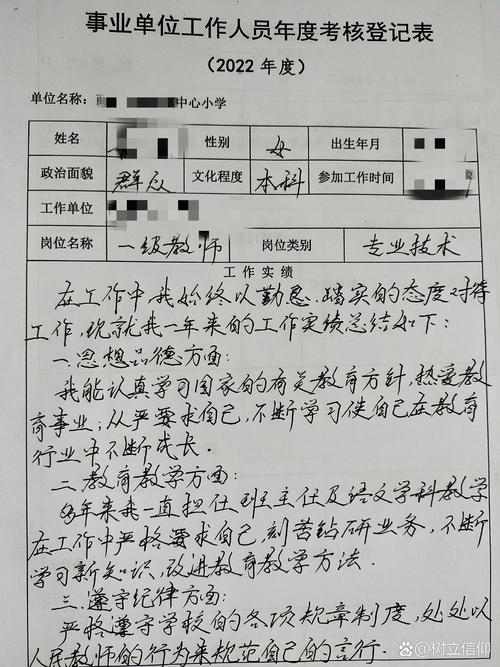 事业单位工作人员年度考核登记表
（2022 年度）
单位名称： 中心小学
姓名 性别 女 出生年月
政治面貌 群众 文化程度 本科 参加工作时间
工作单位
岗位名称 一级教师 岗位类别 专业技术
工 作 实 绩
在工作中我始终以勤恳、踏实的态度对待
工作，现就我一年来的工作实绩总结如下：
一.思想品德方面：
我能认真学习国家的有关教育方针，热爱教
育事业；从严要求自己，不断学习使自己在教育
行业中不断成长.
二.教育教学方面：
年来我一直担任班主任及语文学科教学
在工作中严格要求自己，刻苦钻研业务，不断
学习新知识，改进教育教学方法.
三.遵守纪律方面：
严格遵守学校的各项规章制度，处处以
人民教师的行为来规范自己的言行.
@树立信仰